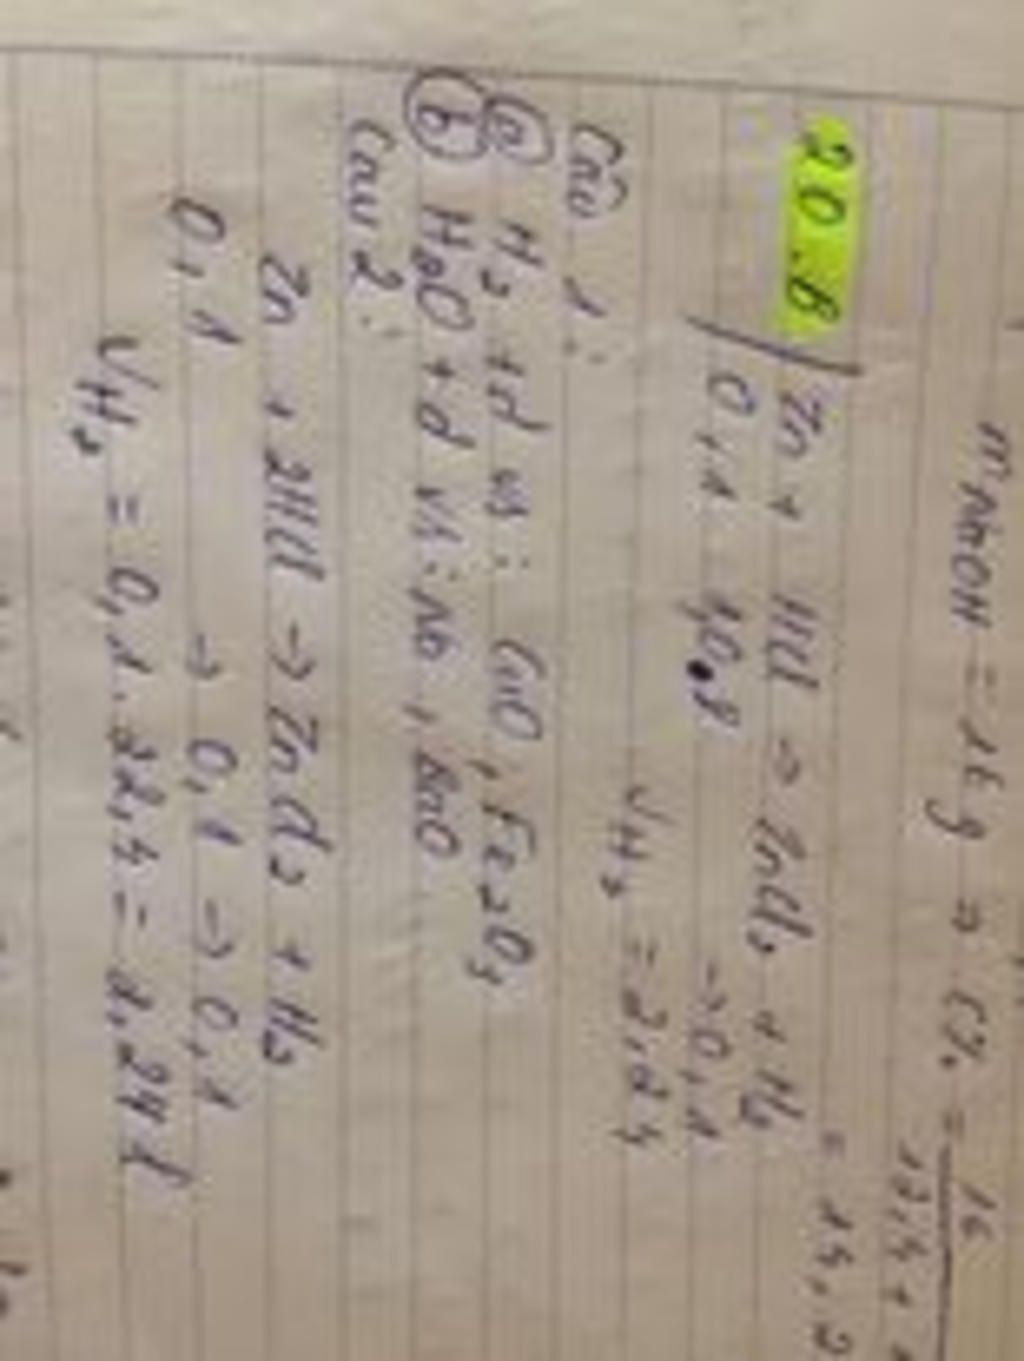 mNaOH = 16 g => C% = 16
= 14,2
20.B Zn + HCl -> ZnCl2 + H2
0,1 -> 0,1
VH2 = 2,24
Câu 1:
a H2 t/d vs: CuO, Fe2O3
b H2O t/d vs: Na, BaO
Câu 2:
Zn + 2HCl -> ZnCl2 + H2
0,1 -> 0,1 -> 0,1
VH2 = 0,1.22,4 = 2,24 l